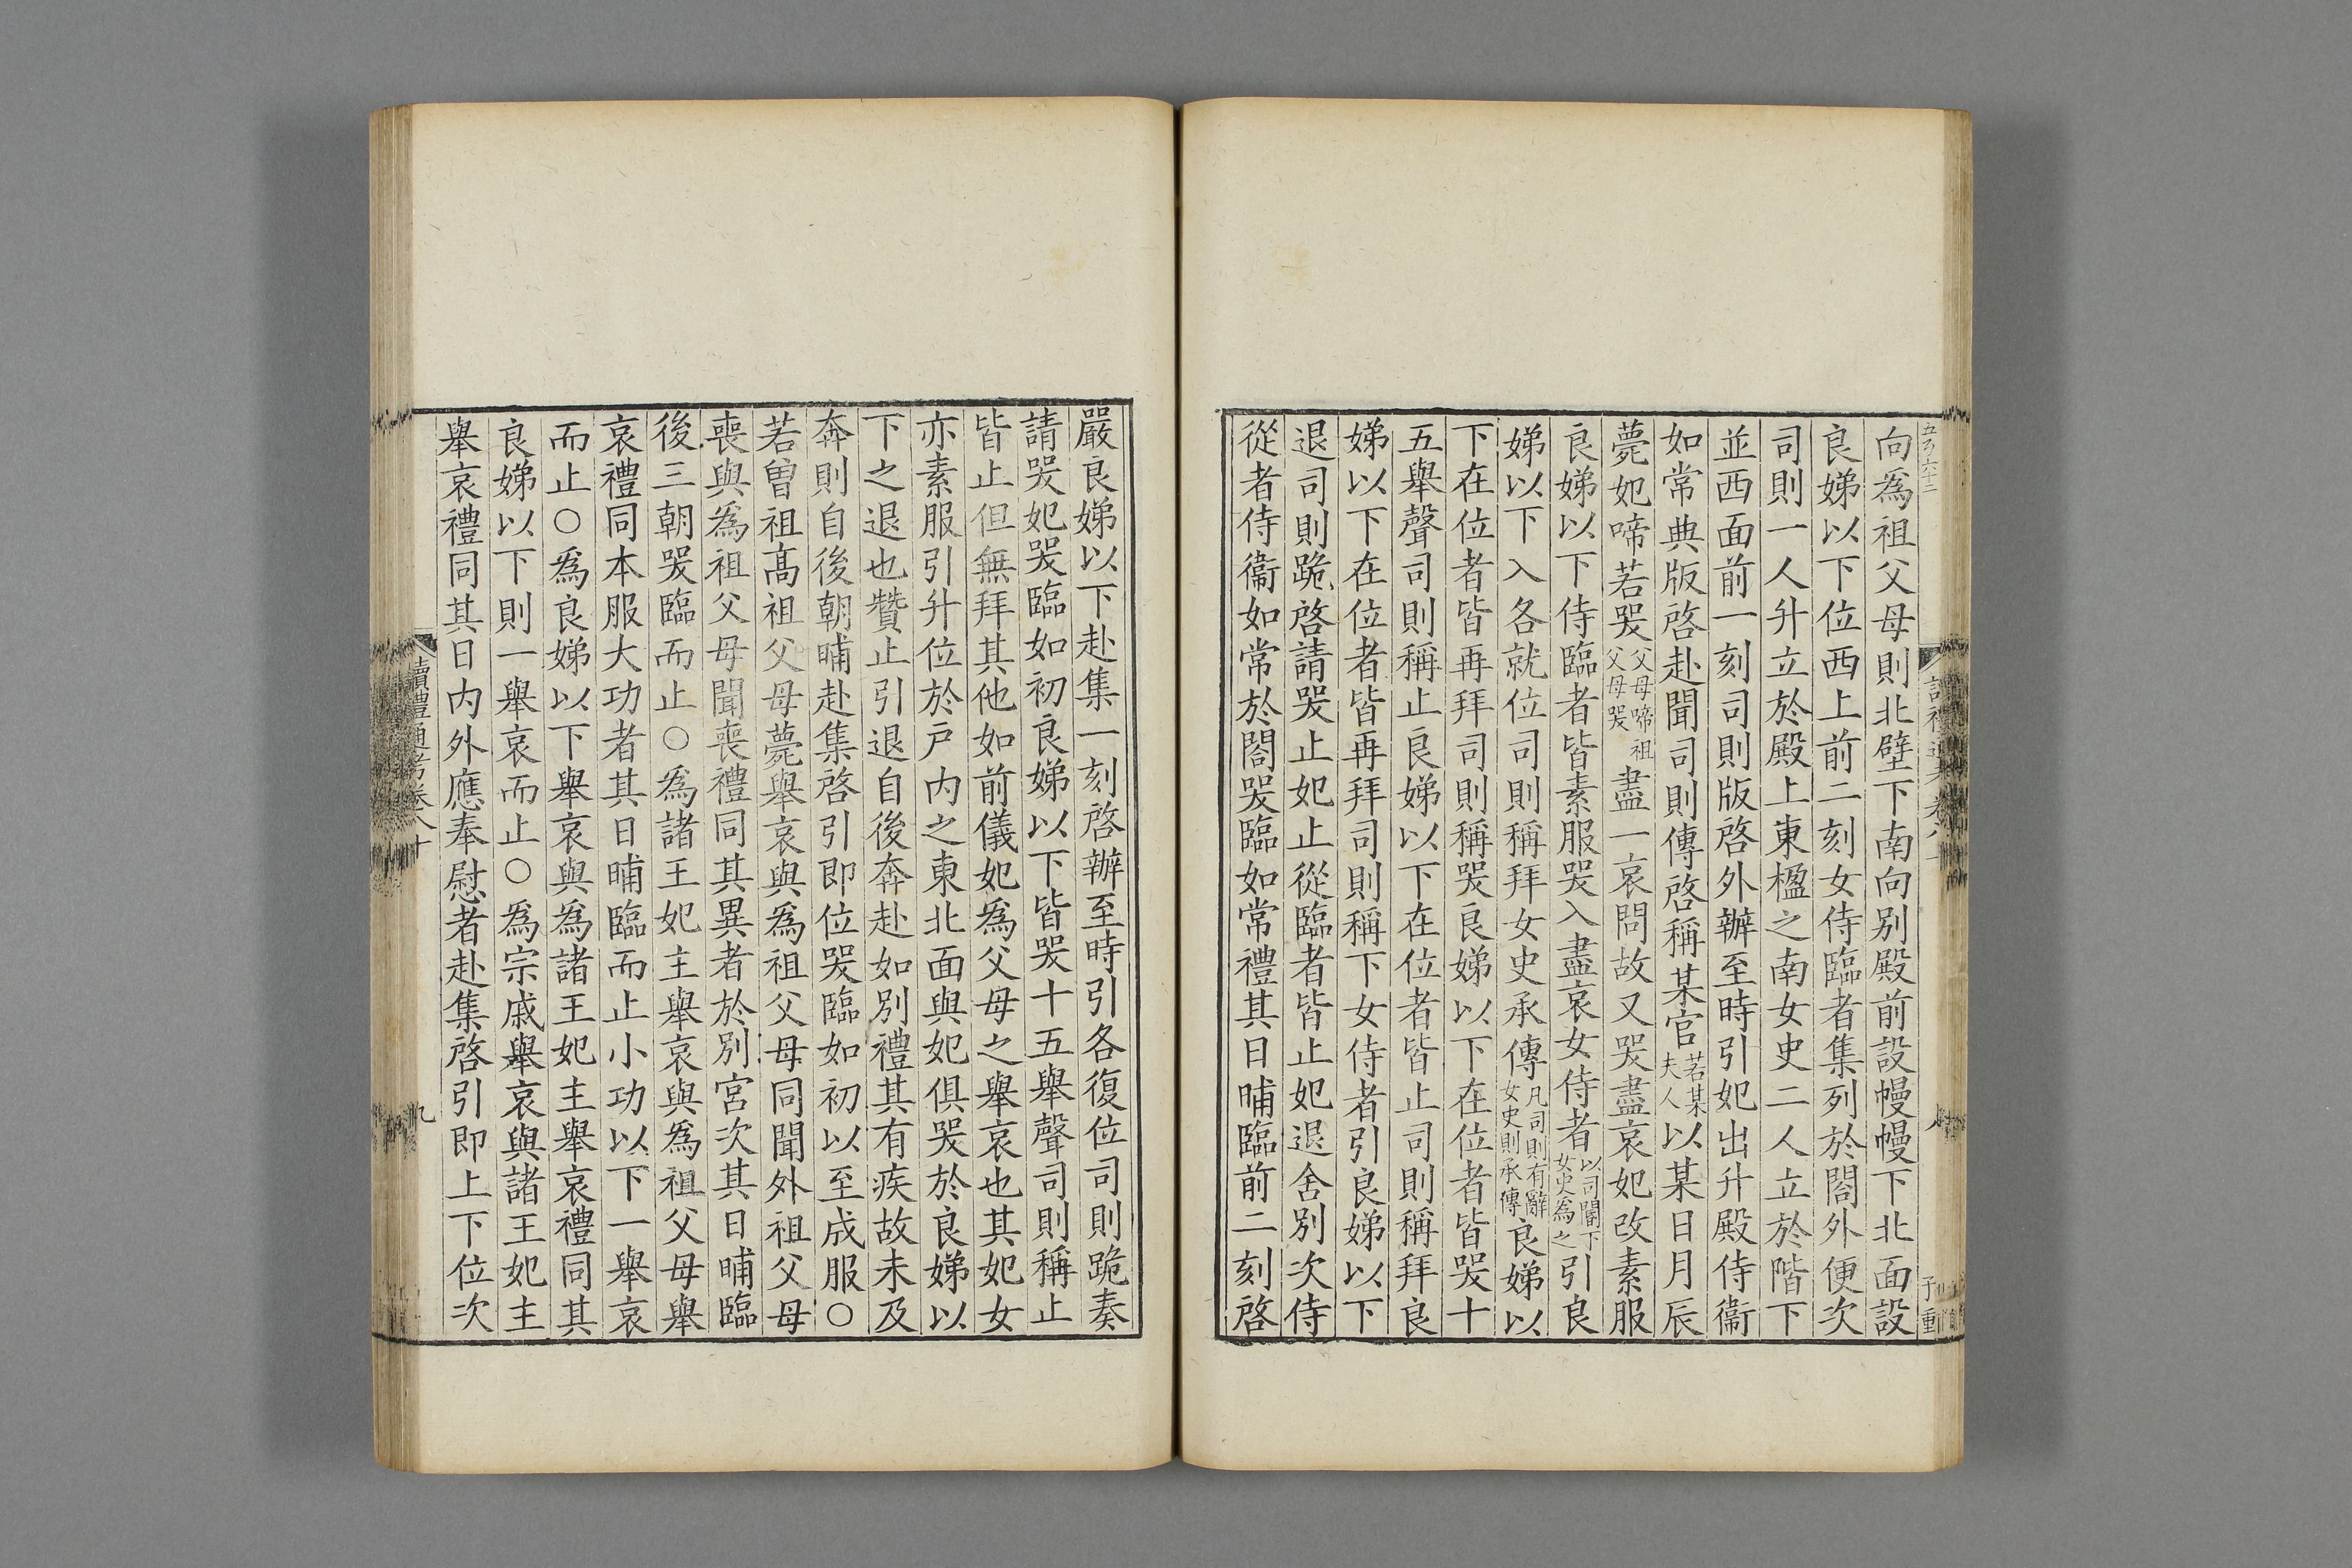 向為祖父母則北壁下南向别殿前設幔幔下北面設
良娣以下位西上前二刻女侍臨者集列於閤外便次
司則一人升立於殿上東楹之南女史二人立於階下
並西面前一刻司則版啓外辦至時引妃出升殿侍衞
如常典版啓赴聞司則傳啓稱某官若某夫人以某日月辰
薨妃啼若哭父母啼祖父母哭盡一哀問故又哭盡哀妃改素服
良娣以下侍臨者皆素服哭入盡哀女侍者以司閽下女史為之引良
娣以下入各就位司則稱拜女史承傳凡司則有辭女史則承傳良娣以
下在位者皆再拜司則稱哭良娣以下在位者皆哭十
五舉聲司則稱止良娣以下在位者皆止司則稱拜良
娣以下在位者皆再拜司則稱下女侍者引良娣以下
退司則跪啓請哭止妃止從臨者皆止妃退舍别次侍
從者侍衞如常於閤哭臨如常禮其日晡臨前二刻啓
嚴良娣以下赴集一刻啓辦至時引各復位司則跪奏
請哭妃哭臨如初良娣以下皆哭十五舉聲司則稱止
皆止但無拜其他如前儀妃為父母之舉哀也其妃女
亦素服引升位於戸内之東北面與妃俱哭於良娣以
下之退也贊止引退自後奔赴如别禮其有疾故未及
奔則自後朝晡赴集啓引即位哭臨如初以至成服○
若曽祖髙祖父母薨舉哀與為祖父母同聞外祖父母
喪與為祖父母聞喪禮同其異者於别宮次其日晡臨
後三朝哭臨而止○為諸王妃主舉哀與為祖父母舉
哀禮同本服大功者其日晡臨而止小功以下一舉哀
而止○為良娣以下舉哀與為諸王妃主舉哀禮同其
良娣以下則一舉哀而止○為宗戚舉哀與諸王妃主
舉哀禮同其日内外應奉慰者赴集啓引即上下位次
讀禮通考卷八十
九